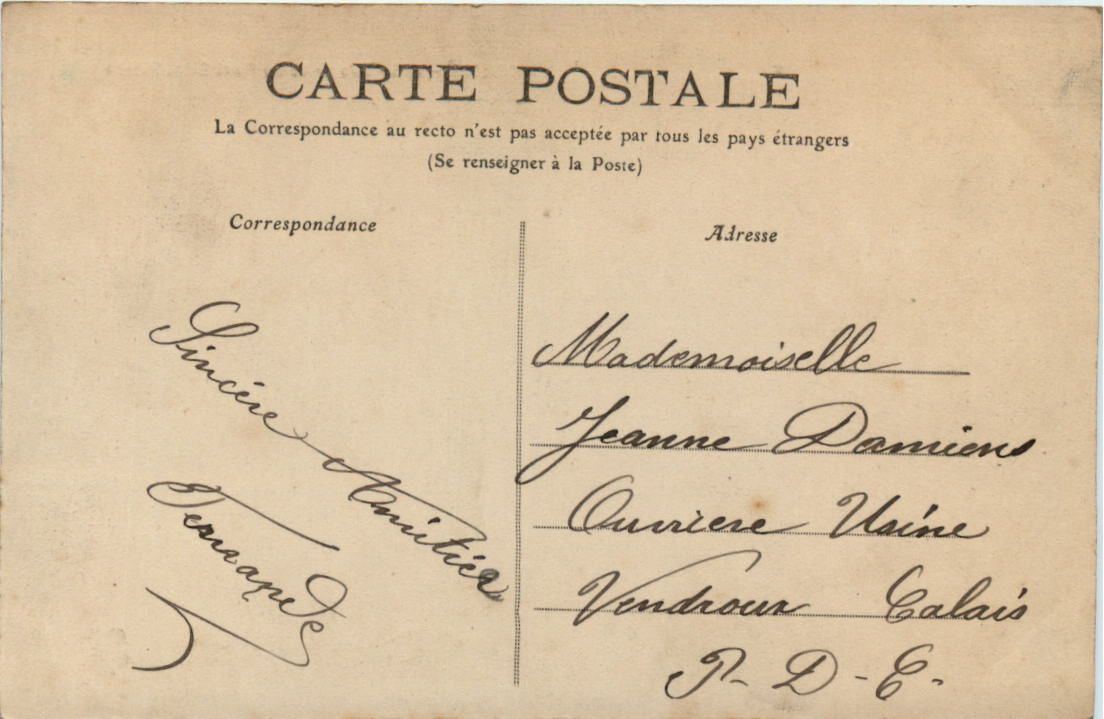 CARTE POSTALE
La Correspondance au recto n'est pas acceptée par tous les pays étrangers
(Se renseigner à la Poste)
Correspondance
Sincère Amitiés
Fernande
Adresse
Mademoiselle
Jeanne Damiens
Ouvriere Usine
Vendroux Calais
P-D-C-